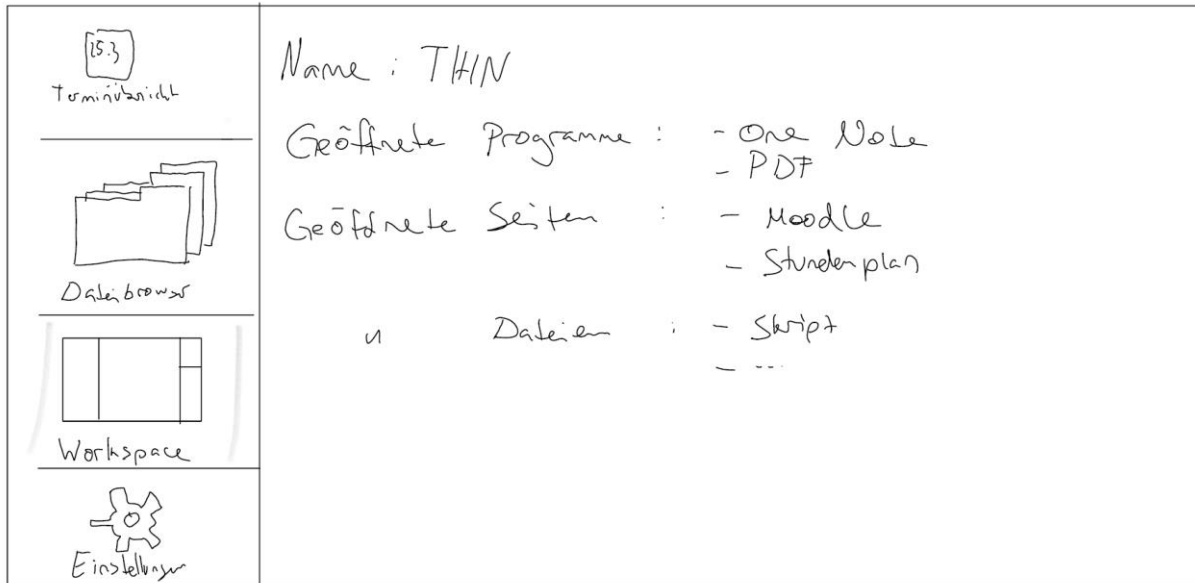 25.3
Terminübersicht
Dateibrowser
Workspace
Einstellungen
Name : THIN
Geöffnete Programme : - One Note
- PDF
Geöffnete Seiten : - Moodle
- Stundenplan
" Dateien : - Skript
- ...